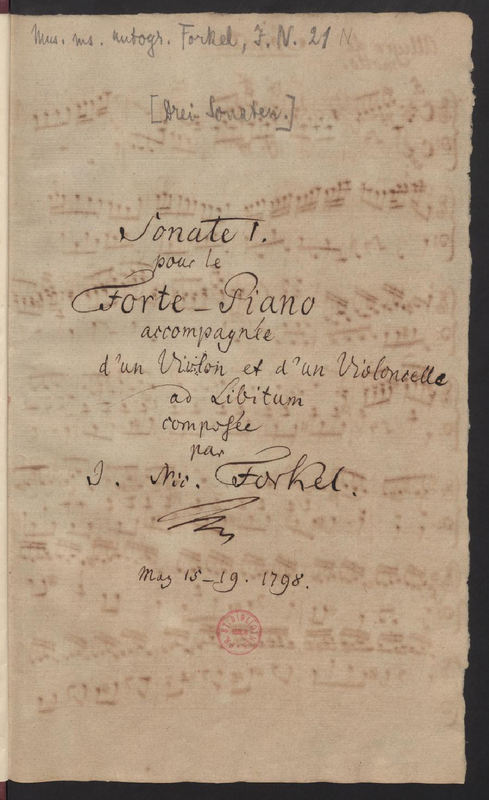 Mus. ms. autogr. Forkel, J. N. 21 N
[Drei Sonaten.]
Sonate 1.
pour le
Forte-Piano
accompagnée
d'un Violon et d'un Violoncelle
ad Libitum
composée
par
J. Nic. Forkel.
May 15-19. 1798.